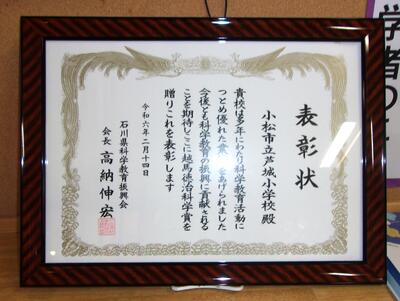 表彰状
小松市立芦城小学校 殿
貴校は多年にわたり科学教育活動に
つとめ優れた業績をあげられました
今後とも科学教育の振興に貢献される
ことを期待しここに越馬徳治科学賞を
贈りこれを表彰します
令和六年二月十四日
石川県科学教育振興会
会長 高納伸宏
学者の